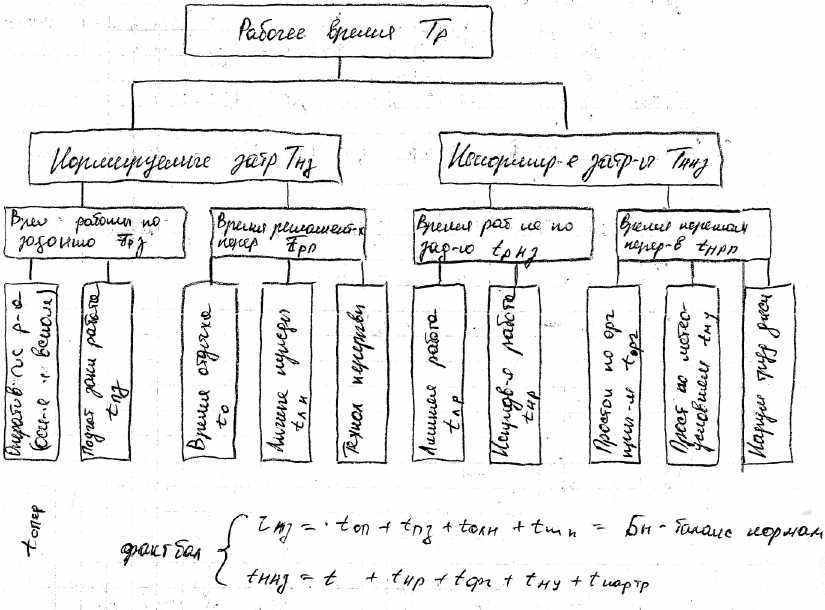 Рабочее время Тр
Нормируемые затр Тнз
Ненормир-е затр-ы Тннз
Врем работы по
заданию Трз
Время регламент-х
перер Трп
Время раб не по
зад-ю tрнз
Время
перер-в tнрп
Оперативное р-а
(осн-е и вспом)
Подгот закл работа
tпз
Время отдыха
tо
Личные
tлн
Технол перерывы
Лишняя работа
tлр
работа
tнр
Простои по орг
прич-м tорг
Прост по метео-
условиям tму
Наруш труд дисц
tопер
факт бал
tнз = tоп + tпз + tолн + = Бн - баланс нормам
tннз = t + tнр + tорг + tму +